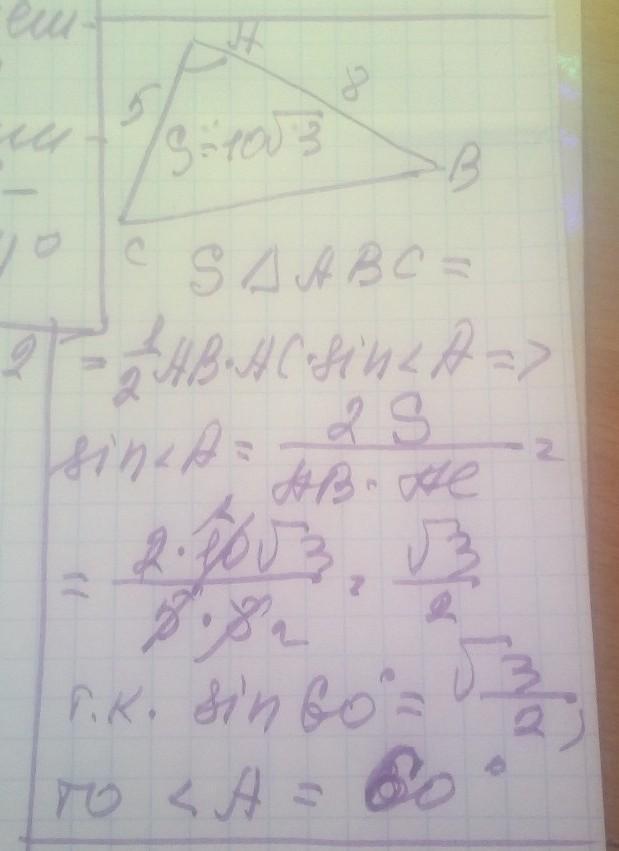 ем-
A
5
8
S = 10√3
B
C
S △ ABC =
2
= 1/2 AB · AC · sin < A = >
sin < A = 2 S / AB · AC =
= 2 · 10√3 / 5 · 8 2 = √3 / 2
т.к. sin 60° = √3 / 2 ,
то < A = 60°